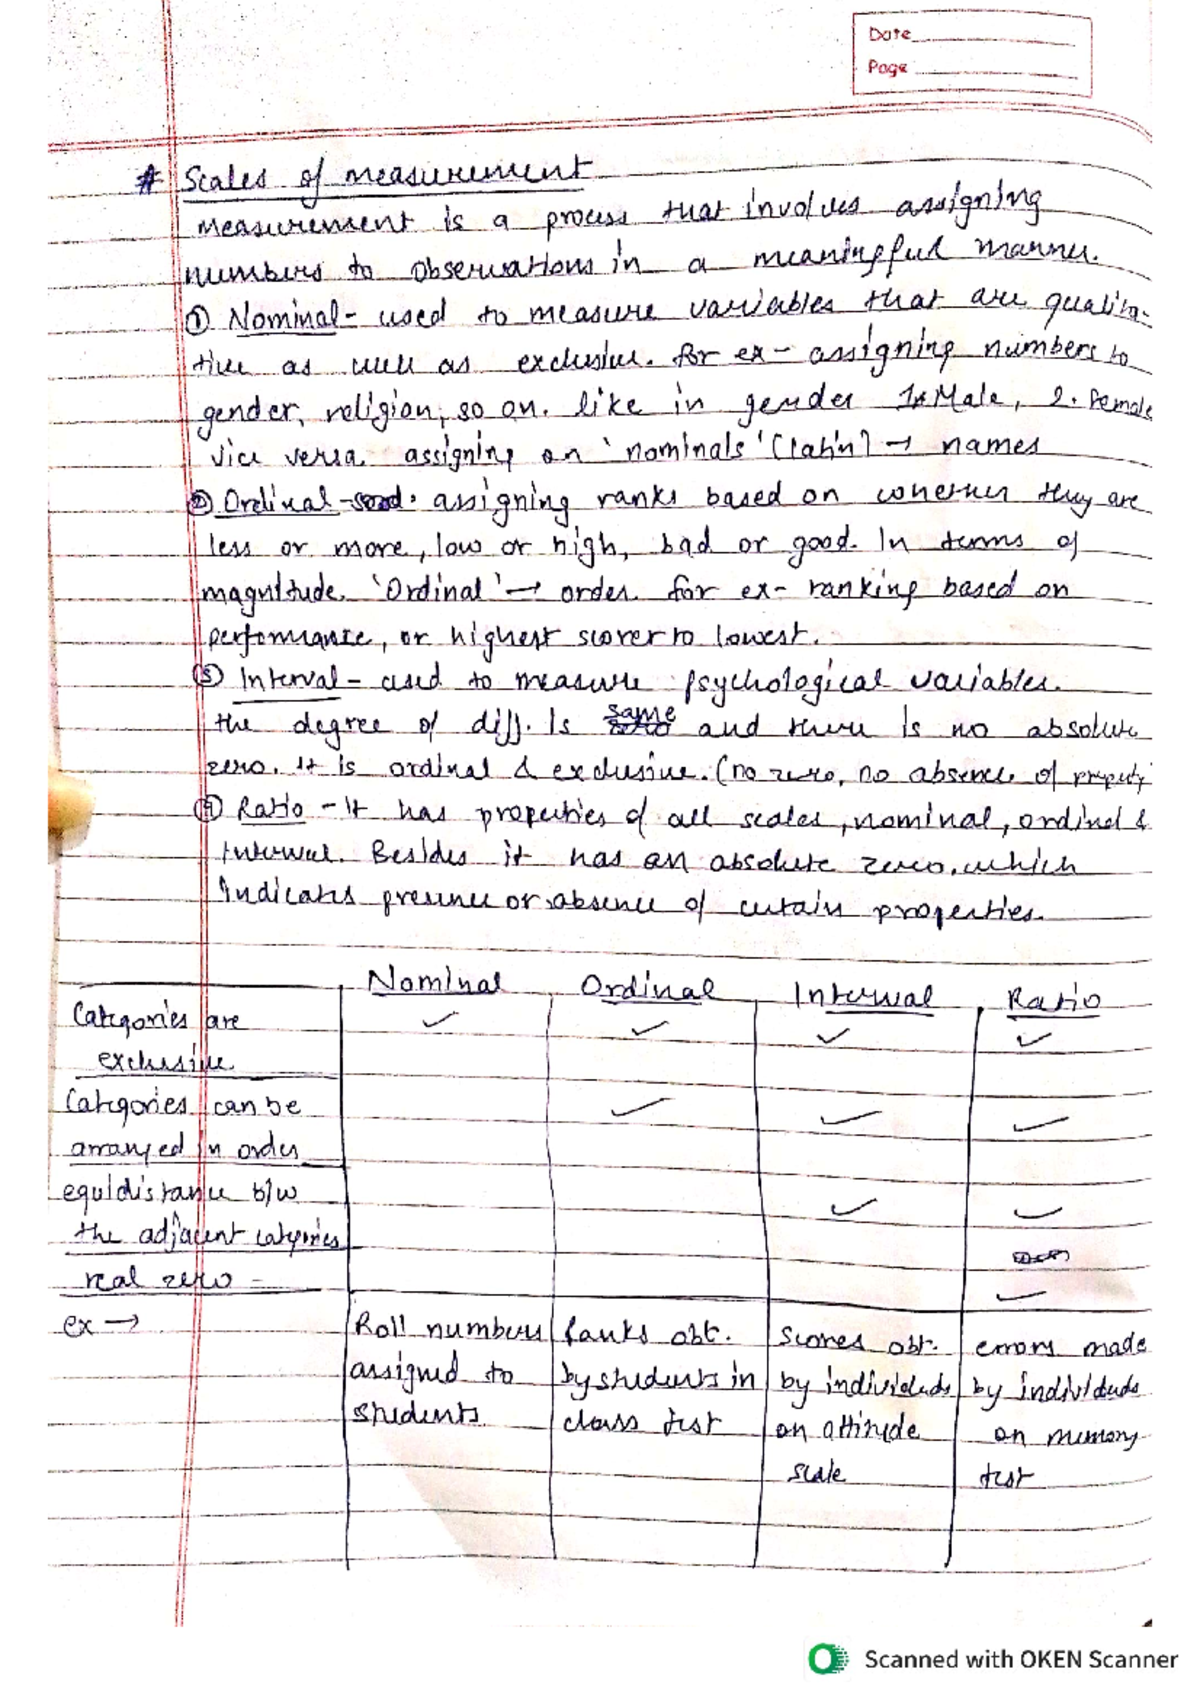 Date
Page
# Scales of measurement
measurement is a process that involves assigning
numbers to observations in a meaningful manner.
① Nominal - used to measure variables that are qualita-
tive as well as exclusive. for ex - assigning numbers to
gender, religion, so on. like in gender 1. Male, 2. Female
vice versa. assigning on 'nominals' (latin) → names
② Ordinal - assigning ranks based on whether they are
less or more, low or high, bad or good. In terms of
magnitude. 'Ordinal' → order. for ex - ranking based on
performance, or highest scorer to lowest.
③ Interval - used to measure psychological variables.
the degree of diff. is same and there is no absolute
zero. It is ordinal & exclusive. (no zero, no absence of property
④ Ratio - It has properties of all scales, nominal, ordinal &
interval. Besides it has an absolute zero. which
indicates presence or absence of certain properties.
Nominal Ordinal Interval Ratio
Categories are ✓ ✓ ✓ ✓
exclusive
Categories can be ✓ ✓ ✓
arranged in order
equidistance b/w ✓ ✓
the adjacent categories
real zero - ✓
ex → Roll numbers ranks obt. scores obt. errors made
assigned to by students in by individuals by individuals
students class test on attitude on memory
scale test
Scanned with OKEN Scanner